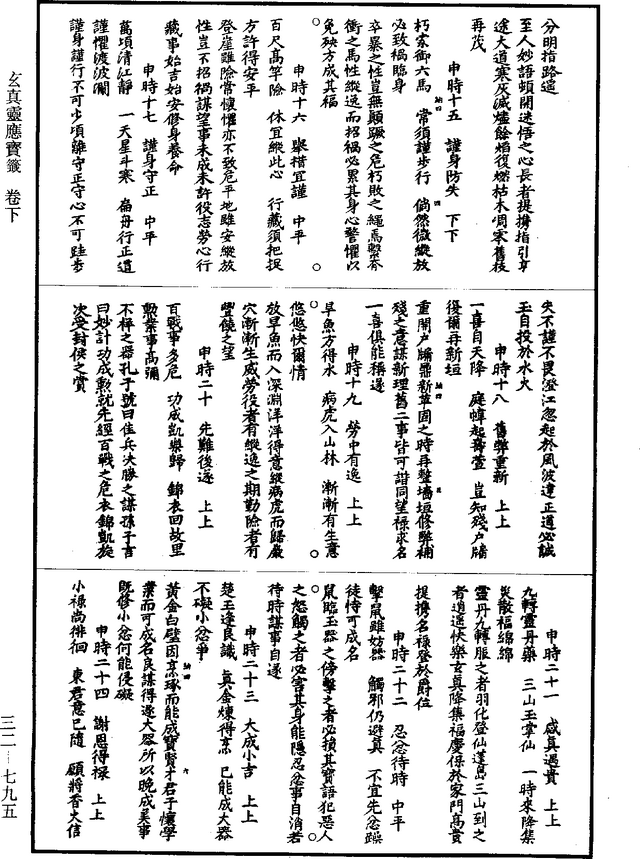 玄真靈應寶籤　卷下
分明指路遥
至人妙語頓開迷悟之心長者提携指引亨
途大道寒灰滅爐餘焰復燃枯木凋零舊枝
再茂
申時十五　謹身防失　下下
朽索御六馬　常須謹步行　倘然微縱放
必致禍臨身
卒暴之性豈無顛蹶之危朽敗之繩焉繫奔
衝之馬性縱逸而招禍必累其身心警懼以
免殃方成其福
申時十六　舉措宜謹　中平
百尺高竿險　休宜縱此心　行藏須把捉
方許得安平
登崖雖險常懷懼亦不致危平地雖安縱放
性豈不招禍謀望事未成未許役志勞心行
藏事始吉始安修身養命
申時十七　謹身守正　中平
萬頃清江靜　一天星斗寒　扁舟行正道
謹懼渡波瀾
謹身謹行不可少頃離守正守心不可跬步
失不謹不畏澄江忽起於風波違正道必誠
玉自投於水火
申時十八　舊弊重新　上上
一喜自天降　庭幃起舊萱　豈知殘戶牖
復爾再新垣
重開戶牖鼎新革固之時再整墻垣修弊補
殘之意謀新理舊二事皆可諧同望祿求名
一喜俱能稱遂
申時十九　勞中有逸　上上
旱魚方得水　病虎入山林　漸漸有生意
悠悠快爾情
放旱魚而入深淵洋洋得意縱病虎而歸巖
穴漸漸生威勞役者有縱逸之期勤險者有
豐饒之望
申時二十　先難後遂　上上
百戰事多危　功成凱樂歸　錦衣回故里
勲業事高彌
不祥之器孔子號曰佳兵決勝之謀孫子言
曰妙計功成勲就先經百戰之危衣錦凱旋
次受封侯之賞
申時二十一　感真遇貴　上上
九轉靈丹藥　三山玉掌仙　一時來降集
災散福綿綿
靈丹九轉服之者羽化登仙蓬島三山到之
者逍遥快樂玄真降集福慶保於家門高貴
提携名祿登於爵位
申時二十二　忍忿待時　中平
擊鼠雖妨器　觸邪仍避真　不宜先忿躁
徒恃可成名
鼠臨玉器之傍擊之者必損其寶語犯惡人
之怒觸之者必害其身能隱忍忿事自消者
待時謀事自遂
申時二十三　大成小吉　上上
楚玉逢良識　真金煉得烹　已能成大器
不礙小忿爭
黃金白璧因烹琢而能成寶賢才君子懷學
業而可成名良謀得遂大器所以晚成美事
既修小忿何能侵礙
申時二十四　謝恩得祿　上上
小祿尚徘徊　東君意已隨　願將香火信
三二—七九五